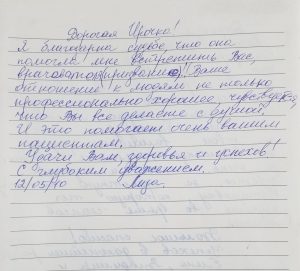 Дорогая Ирочка!
Я благодарна судьбе, что она
помогла мне встретить Вас,
врача от призвания! Ваше
отношение к людям не только
профессионально хорошее, чувствуется,
что Вы все делаете с душой,
И это помогает очень вашим
пациентам.
Удачи Вам, здоровья и успехов!
С глубоким уважением.
12/05/10 Лиза.